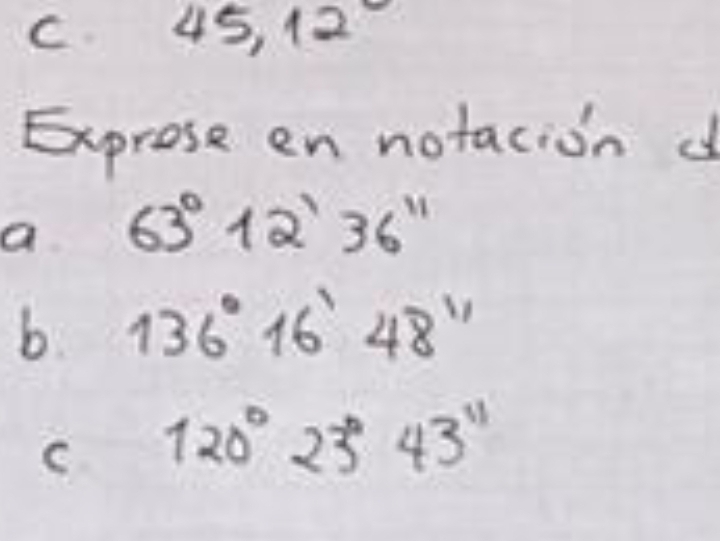 c. 45,12°
Exprese en notación d
a. 63° 12' 36"
b. 136° 16' 48"
c 120° 23° 43"